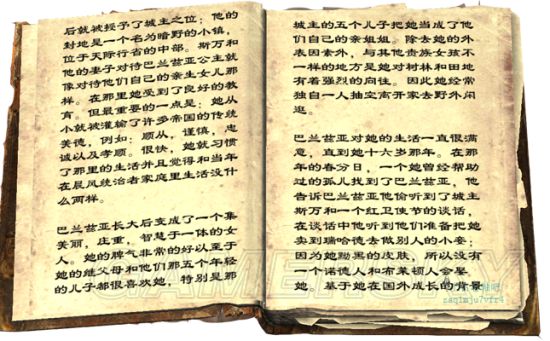 后就被授予了城主之位；他的
封地是一个名为暗野的小镇，
位于天际行省的中部。斯万和
他的妻子对待巴兰兹亚公主就
像对待他们自己的亲生女儿那
样。在那里她受到了良好的教
育。但最重要的一点是：她从
小就被灌输了许多帝国的传统
美德，例如：顺从，谨慎，忠
诚以及孝顺。很快，她就习惯
了那里的生活并且觉得和当年
在晨风统治者家庭里生活没什
么两样。
巴兰兹亚长大后变成了一个集
美丽，庄重，智慧于一体的女
人。她的脾气非常的好以至于
她的继父母和他们那五个年轻
的儿子都很喜欢她，特别是那
城主的五个儿子把她当成了他
们自己的亲姐姐。除去她的外
表因素外，与其他贵族女孩不
一样的地方是她对树林和田地
有着强烈的向往。因此她经常
独自一人抽空离开家去野外闲
逛。
巴兰兹亚对她的生活一直很满
意，直到她十六岁那年。在那
年的春分日，一个她曾经帮助
过的孤儿找到了巴兰兹亚，他
告诉巴兰兹亚他偷听到了城主
斯万和一个红卫使节的谈话，
在谈话中他听到他们准备把她
卖到瑞哈德去做别人的小妾；
因为她黝黑的皮肤，所以没有
一个诺德人和布莱顿人会娶
她。基于她在国外成长的背景
GAMERSKY
zaq1mju7vfr4